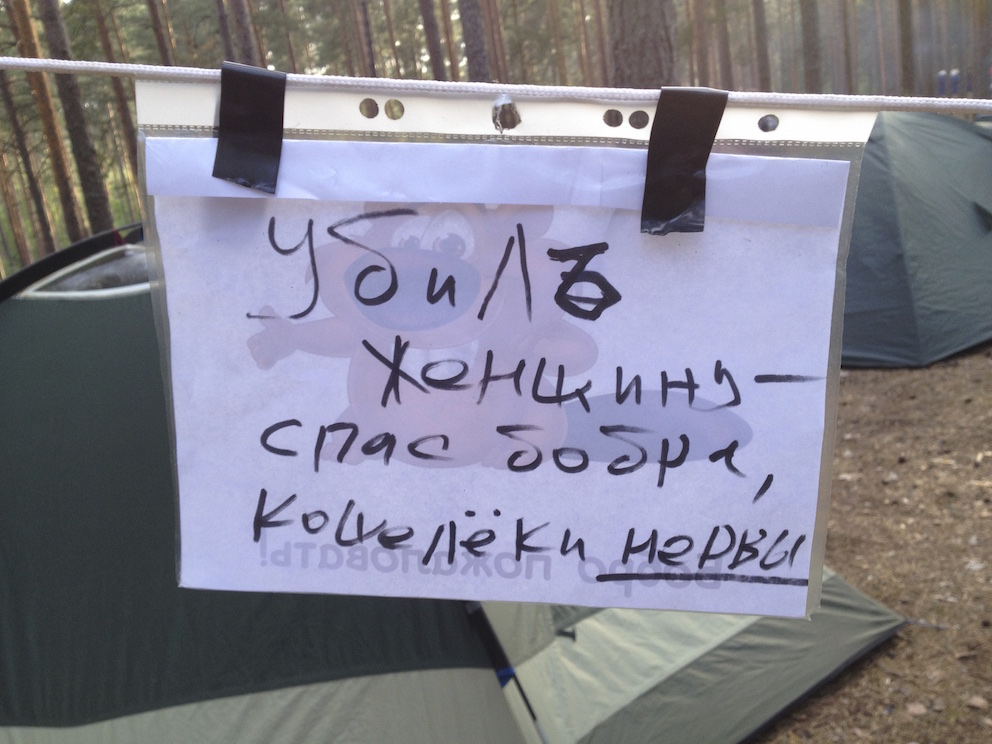 Убилъ
женщину —
спас бобра,
кошелёк и нервы
Бобро пожаловать!